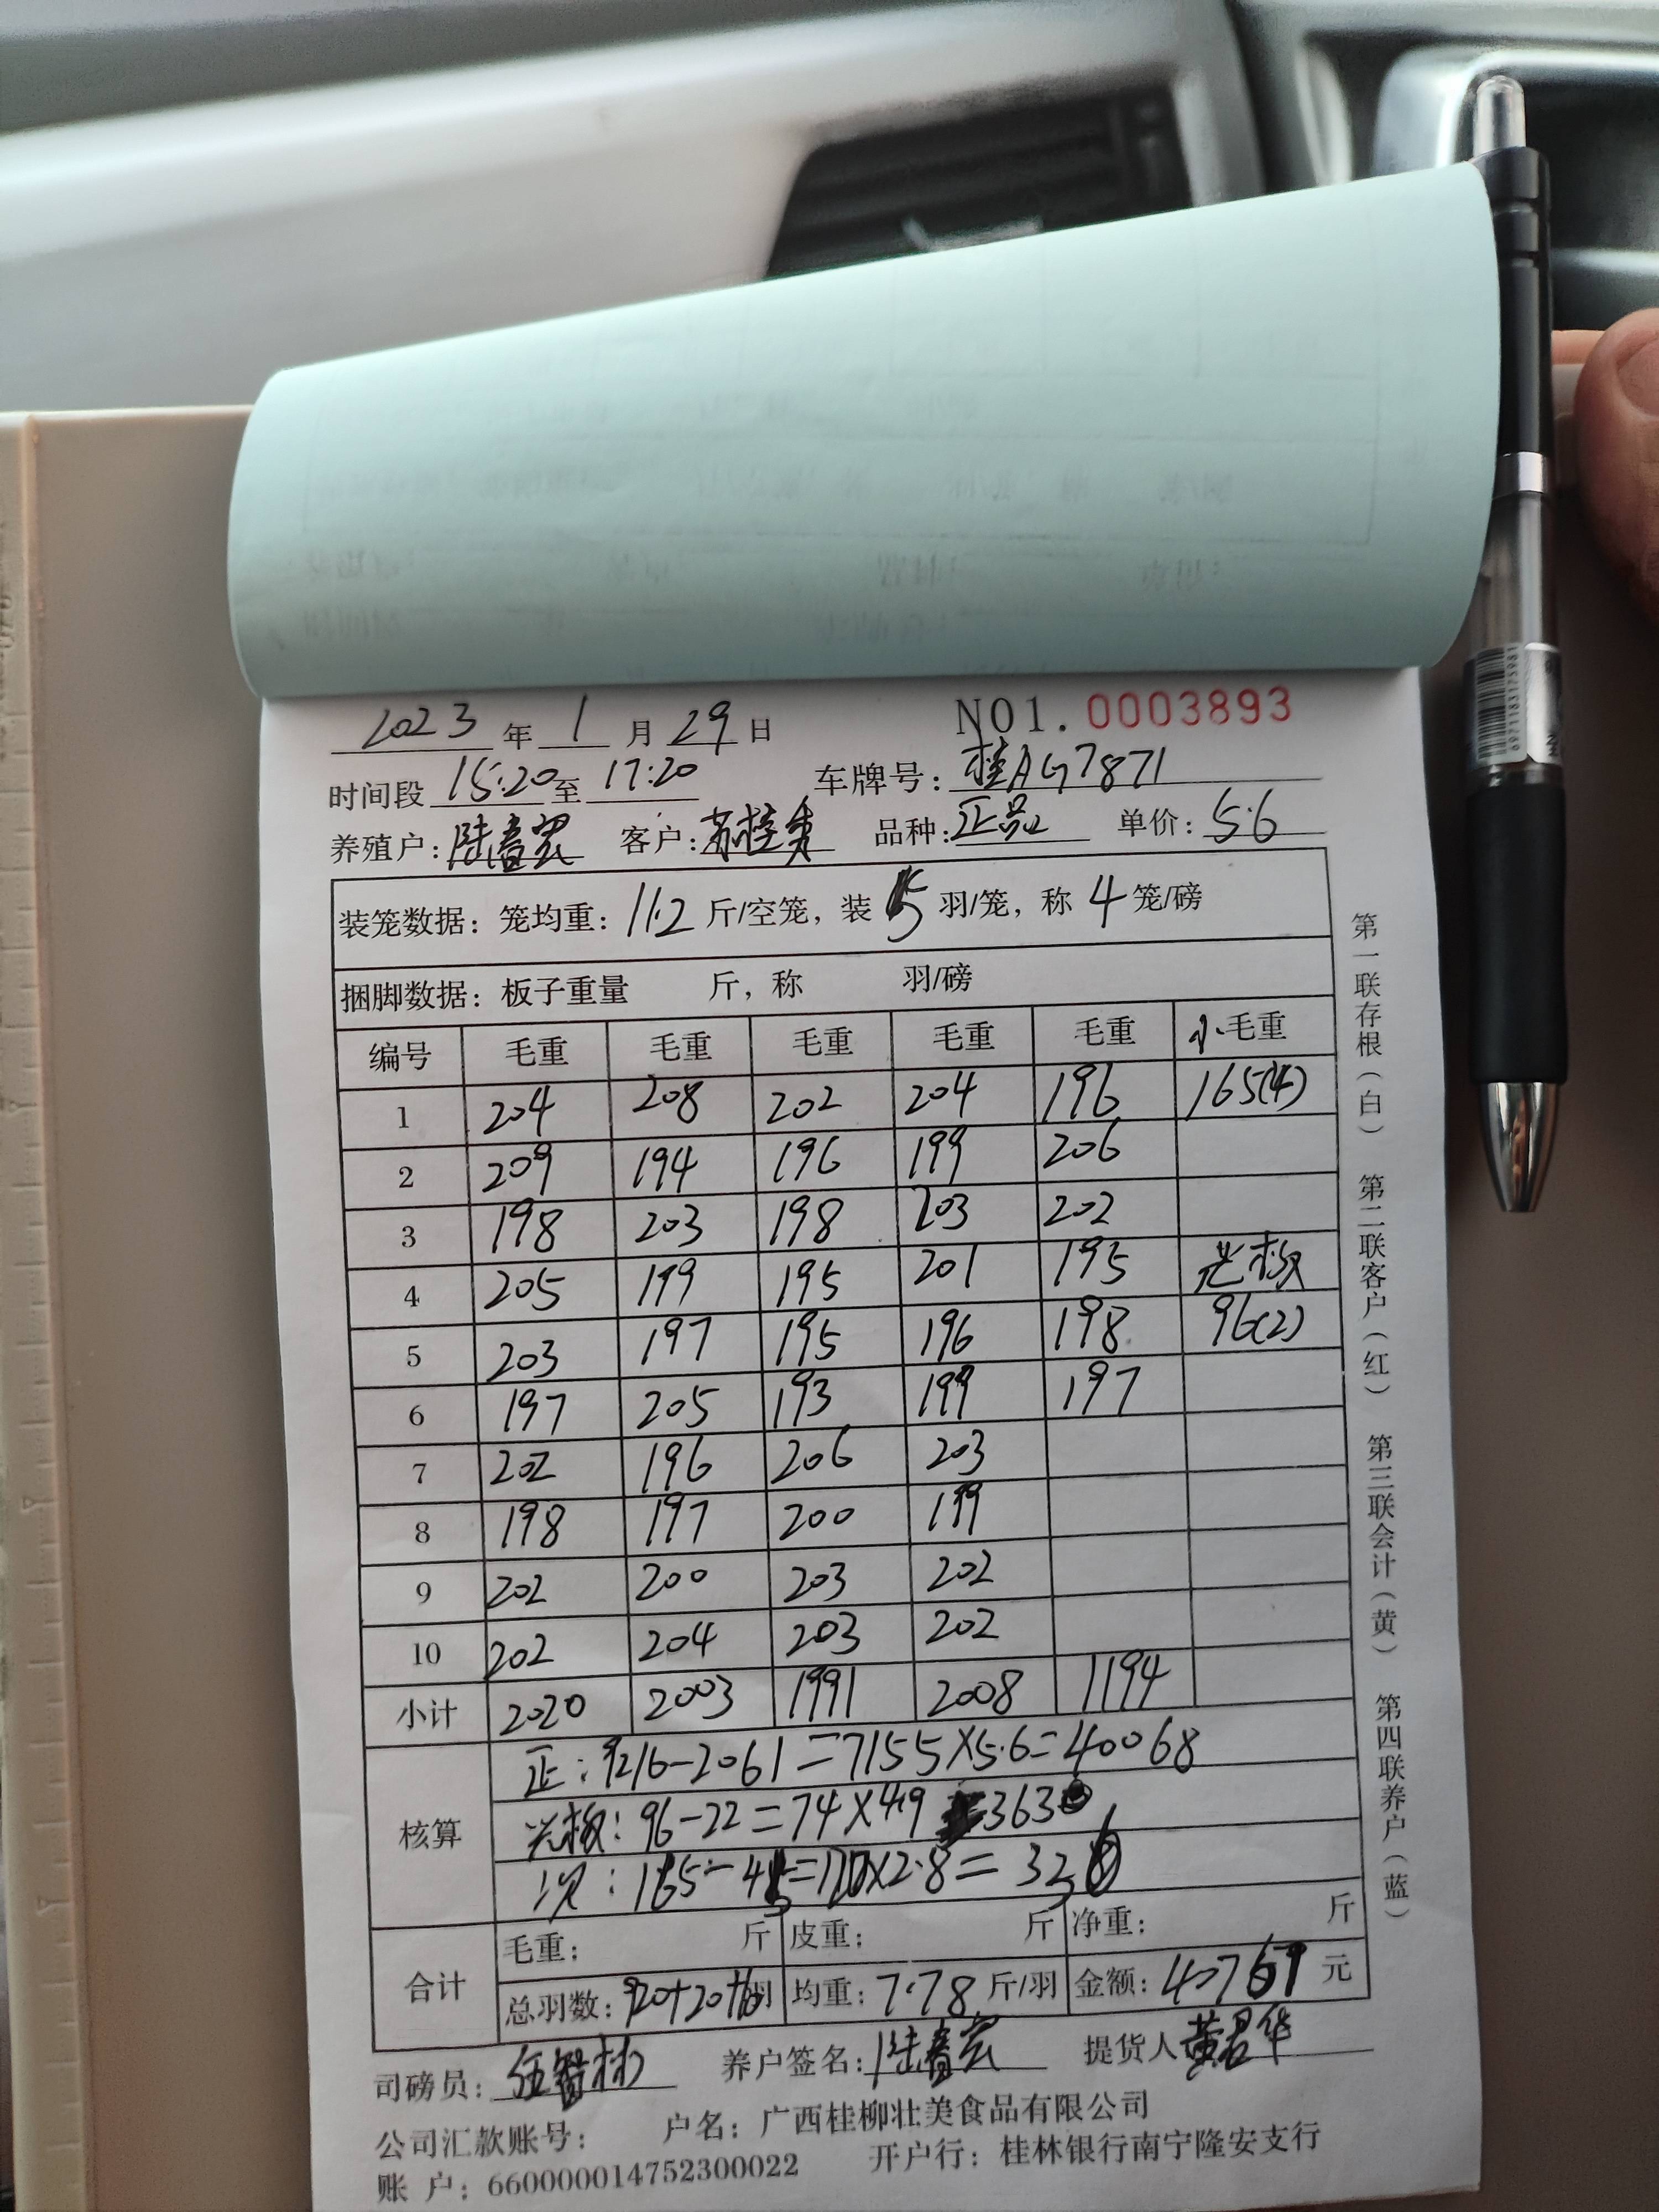 2023 年 1 月 29 日 NO1. 0003893
时间段 15:20 至 17:20 车牌号: 桂AG7871
养殖户: 陆春宏 客户: 品种: 正品 单价: 5.6
装笼数据: 笼均重: 11.2 斤/空笼, 装 5 羽/笼, 称 4 笼/磅
捆脚数据: 板子重量 斤, 称 羽/磅
编号 毛重 毛重 毛重 毛重 毛重 小毛重
1 204 208 202 204 196 165(4)
2 209 194 196 199 206
3 198 203 198 203 202
4 205 199 195 201 195 光板
5 203 197 195 196 198 96(2)
6 197 205 193 199 197
7 202 196 206 203
8 198 197 200 199
9 202 200 203 202
10 202 204 203 202
小计 2020 2003 1991 2008 1194
核算
正: 9216-2061=7155×5.6=40068
光板: 96-22=74×4.9 =363
次: 165-45=120×2.8=336
合计
毛重: 斤 皮重: 斤 净重: 斤
总羽数: 920+20+ 羽 均重: 7.78 斤/羽 金额: 40767 元
司磅员: 养户签名: 陆春宏 提货人
公司汇款账号: 户名: 广西桂柳壮美食品有限公司
账 户: 660000014752300022 开户行: 桂林银行南宁隆安支行
第一联存根(白) 第二联客户(红) 第三联会计(黄) 第四联养户(蓝)
6971183175981